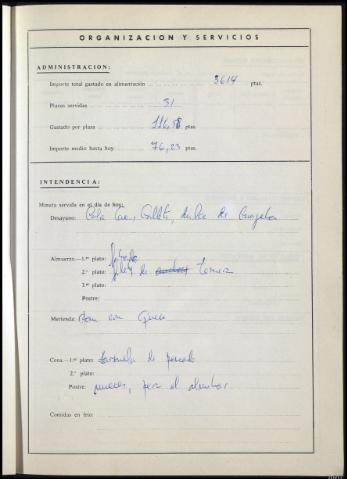 ORGANIZACION Y SERVICIOS
ADMINISTRACION:
Importe total gastado en alimentación 3614 ptas.
Plazas servidas 31
Gastado por plaza 116,58 ptas.
Importe medio hasta hoy 76,23 ptas.
INTENDENCIA:
Minuta servida en el día de hoy:
Desayuno: Cola Cao, Galletas, dulce de
Almuerzo.—1.er plato:
2.º plato: de ternera
3.er plato:
Postre:
Merienda: Pan con Queso
Cena.—1.er plato: de pescado
2.º plato:
Postre: nueces, pera el almíbar.
Comidas en frío: